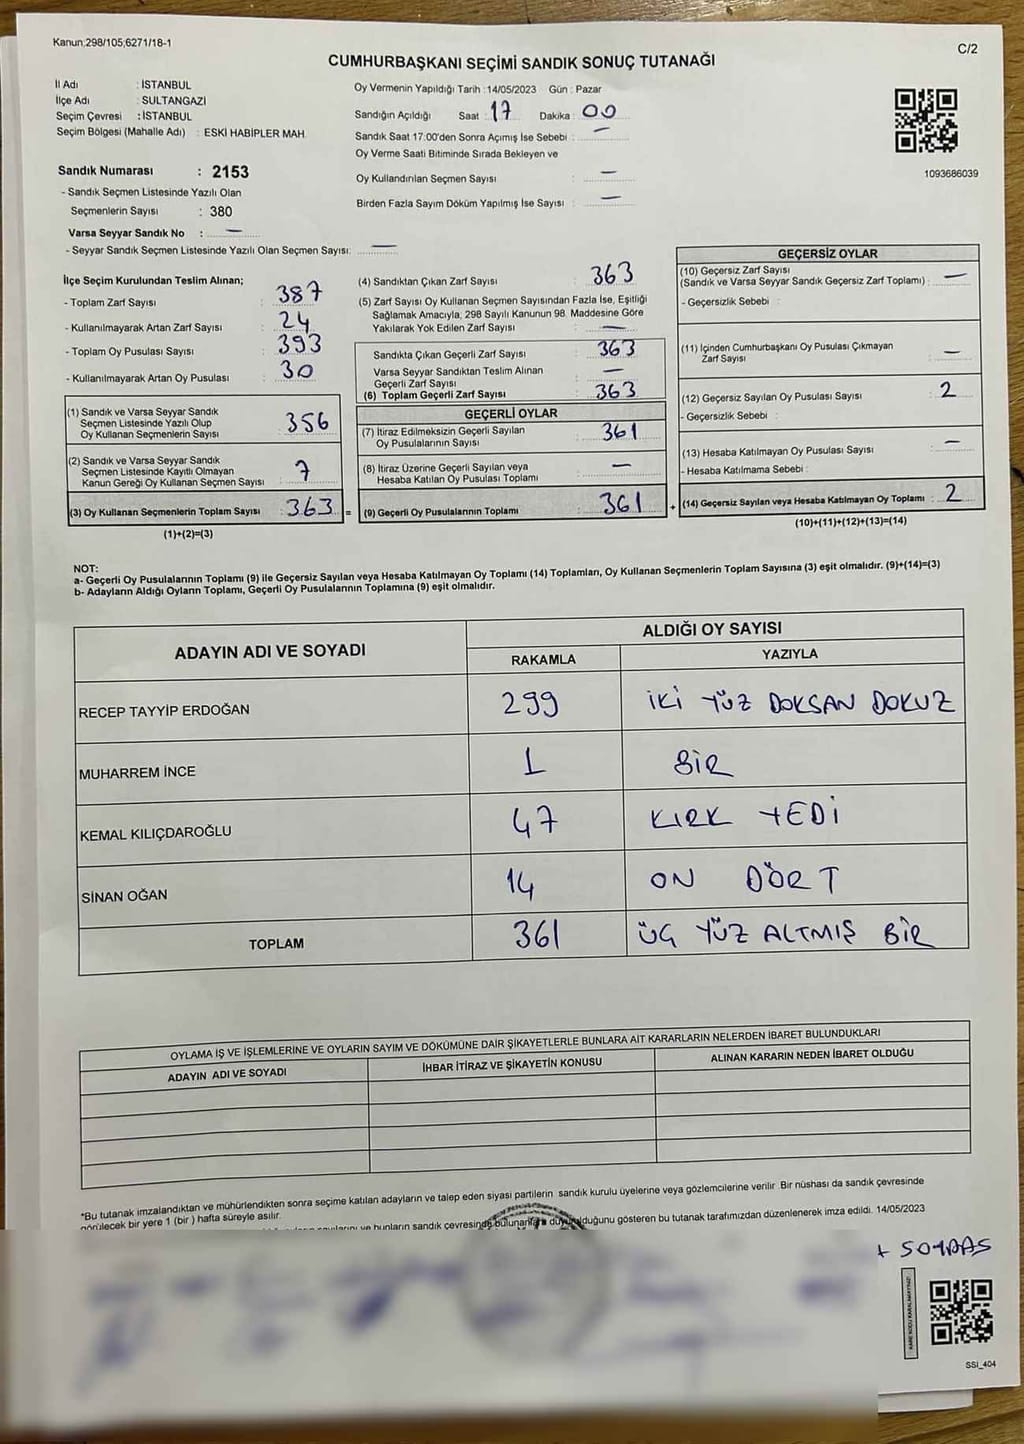 Kanun;298/105;6271/18-1
C/2
CUMHURBAŞKANI SEÇİMİ SANDIK SONUÇ TUTANAĞI
İl Adı : İSTANBUL
İlçe Adı : SULTANGAZİ
Seçim Çevresi : İSTANBUL
Seçim Bölgesi (Mahalle Adı) : ESKİ HABİPLER MAH.
Sandık Numarası : 2153
- Sandık Seçmen Listesinde Yazılı Olan
Seçmenlerin Sayısı : 380
Varsa Seyyar Sandık No : —
- Seyyar Sandık Seçmen Listesinde Yazılı Olan Seçmen Sayısı: —
Oy Vermenin Yapıldığı Tarih : 14/05/2023 Gün : Pazar
Sandığın Açıldığı Saat : 17 Dakika : 00
Sandık Saat 17:00'den Sonra Açımış İse Sebebi : —
Oy Verme Saati Bitiminde Sırada Bekleyen ve
Oy Kullandırılan Seçmen Sayısı : —
Birden Fazla Sayım Döküm Yapılmış İse Sayısı : —
1093686039
İlçe Seçim Kurulundan Teslim Alınan;
- Toplam Zarf Sayısı : 387
- Kullanılmayarak Artan Zarf Sayısı : 24
- Toplam Oy Pusulası Sayısı : 393
- Kullanılmayarak Artan Oy Pusulası : 30
(1) Sandık ve Varsa Seyyar Sandık
Seçmen Listesinde Yazılı Olup
Oy Kullanan Seçmenlerin Sayısı : 356
(2) Sandık ve Varsa Seyyar Sandık
Seçmen Listesinde Kayıtlı Olmayan
Kanun Gereği Oy Kullanan Seçmen Sayısı : 7
(3) Oy Kullanan Seçmenlerin Toplam Sayısı : 363 =
(1)+(2)=(3)
(4) Sandıktan Çıkan Zarf Sayısı : 363
(5) Zarf Sayısı Oy Kullanan Seçmen Sayısından Fazla İse, Eşitliği
Sağlamak Amacıyla, 298 Sayılı Kanunun 98. Maddesine Göre
Yakılarak Yok Edilen Zarf Sayısı : —
Sandıkta Çıkan Geçerli Zarf Sayısı : 363
Varsa Seyyar Sandıktan Teslim Alınan
Geçerli Zarf Sayısı : —
(6) Toplam Geçerli Zarf Sayısı : 363
GEÇERLİ OYLAR
(7) İtiraz Edilmeksizin Geçerli Sayılan
Oy Pusulalarının Sayısı : 361
(8) İtiraz Üzerine Geçerli Sayılan veya
Hesaba Katılan Oy Pusulası Toplamı : —
(9) Geçerli Oy Pusulalarının Toplamı : 361 +
GEÇERSİZ OYLAR
(10) Geçersiz Zarf Sayısı
(Sandık ve Varsa Seyyar Sandık Geçersiz Zarf Toplamı) : —
- Geçersizlik Sebebi :
(11) İçinden Cumhurbaşkanı Oy Pusulası Çıkmayan
Zarf Sayısı : —
(12) Geçersiz Sayılan Oy Pusulası Sayısı : 2
- Geçersizlik Sebebi :
(13) Hesaba Katılmayan Oy Pusulası Sayısı : —
- Hesaba Katılmama Sebebi :
(14) Geçersiz Sayılan veya Hesaba Katılmayan Oy Toplamı : 2
(10)+(11)+(12)+(13)=(14)
NOT:
a- Geçerli Oy Pusulalarının Toplamı (9) ile Geçersiz Sayılan veya Hesaba Katılmayan Oy Toplamı (14) Toplamları, Oy Kullanan Seçmenlerin Toplam Sayısına (3) eşit olmalıdır. (9)+(14)=(3)
b- Adayların Aldığı Oyların Toplamı, Geçerli Oy Pusulalarının Toplamına (9) eşit olmalıdır.
ADAYIN ADI VE SOYADI
ALDIĞI OY SAYISI
RAKAMLA YAZIYLA
RECEP TAYYİP ERDOĞAN 299 İKİ YÜZ DOKSAN DOKUZ
MUHARREM İNCE 1 BİR
KEMAL KILIÇDAROĞLU 47 KIRK YEDİ
SİNAN OĞAN 14 ON DÖRT
TOPLAM 361 ÜÇ YÜZ ALTMIŞ BİR
OYLAMA İŞ VE İŞLEMLERİNE VE OYLARIN SAYIM VE DÖKÜMÜNE DAİR ŞİKAYETLERLE BUNLARA AİT KARARLARIN NELERDEN İBARET BULUNDUKLARI
ADAYIN ADI VE SOYADI İHBAR İTİRAZ VE ŞİKAYETİN KONUSU ALINAN KARARIN NEDEN İBARET OLDUĞU
*Bu tutanak imzalandıktan ve mühürlendikten sonra seçime katılan adayların ve talep eden siyasi partilerin sandık kurulu üyelerine veya gözlemcilerine verilir. Bir nüshası da sandık çevresinde
görülecek bir yere 1 (bir) hafta süreyle asılır.
ve bunların sandık çevresinde bulunanlara duyurulduğunu gösteren bu tutanak tarafımızdan düzenlenerek imza edildi. 14/05/2023
SSI_404